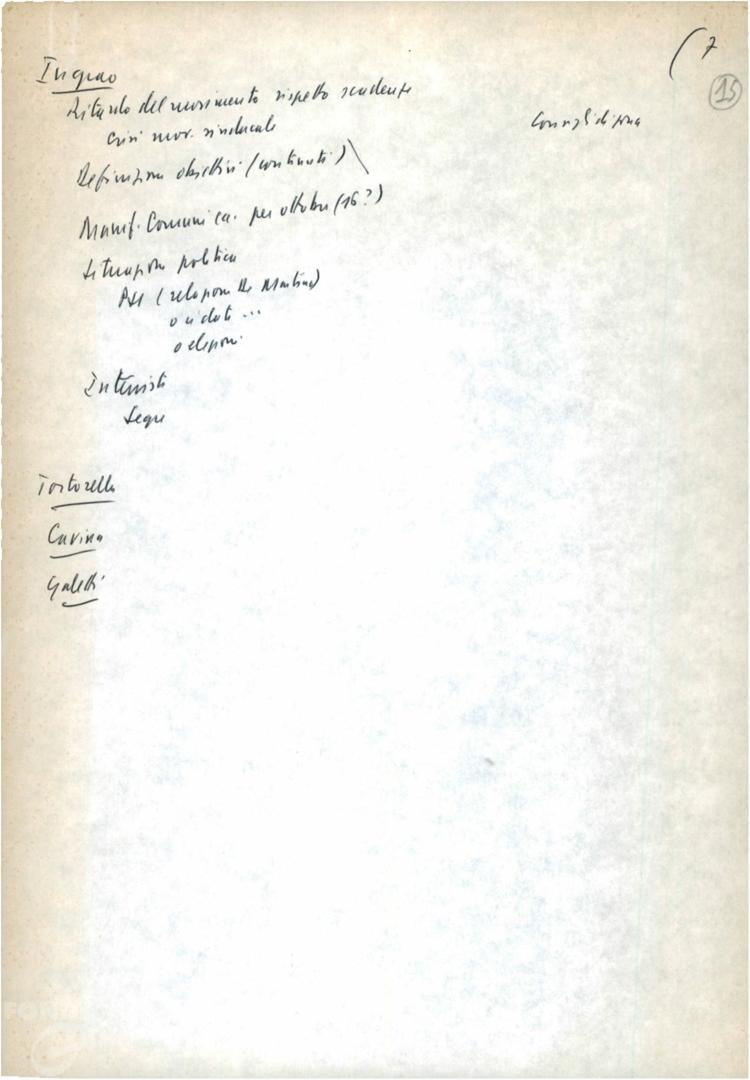 (7
15
Ingrao
Ritardo del movimento rispetto scadenze
Consigli di zona
crisi mov. sindacale
Definizione obiettivi (contenuti)
Manif. Comuni ca. per ottobre (16?)
Situazione politica
PSI (relazione De Martino)
o
o elezioni
Intervisti
Segre
Tortorella
Cavina
Galetti